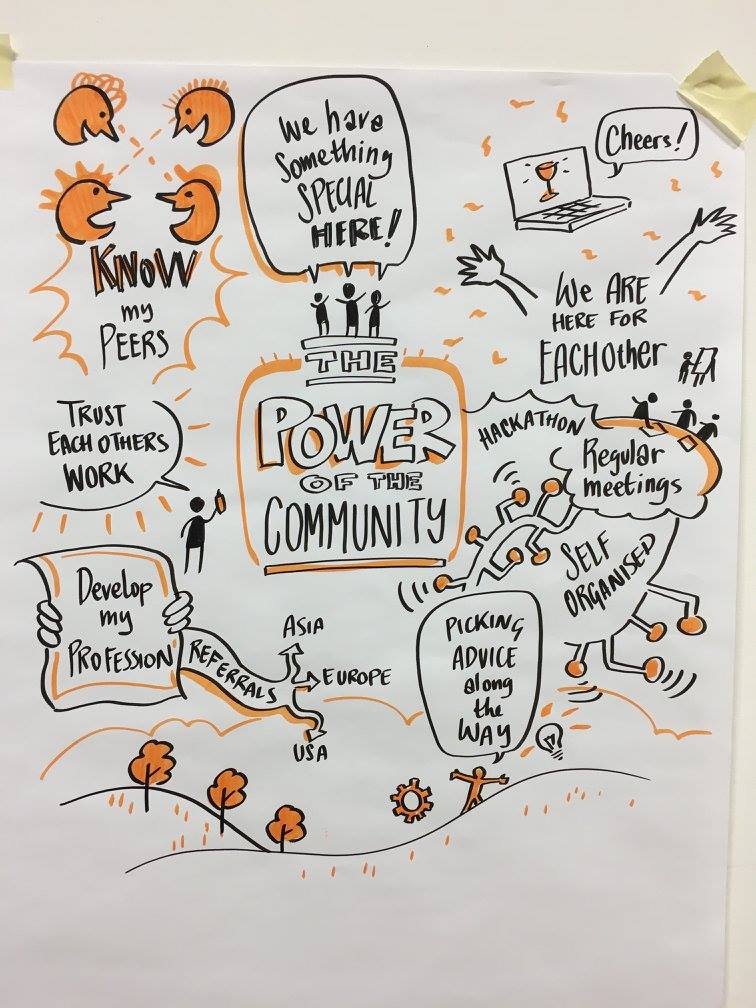 We have
Something
SPECIAL
HERE!
Cheers!
KNOW
my
PEERS
We ARE
HERE FOR
EACHOther
THE
POWER
OF THE
COMMUNITY
TRUST
EACH OTHERS
WORK
HACKATHON
Regular
meetings
SELF
ORGANISED
Develop
my
PROFESSION
REFERRALS
ASIA
EUROPE
USA
PICKING
ADVICE
along
the
WAY